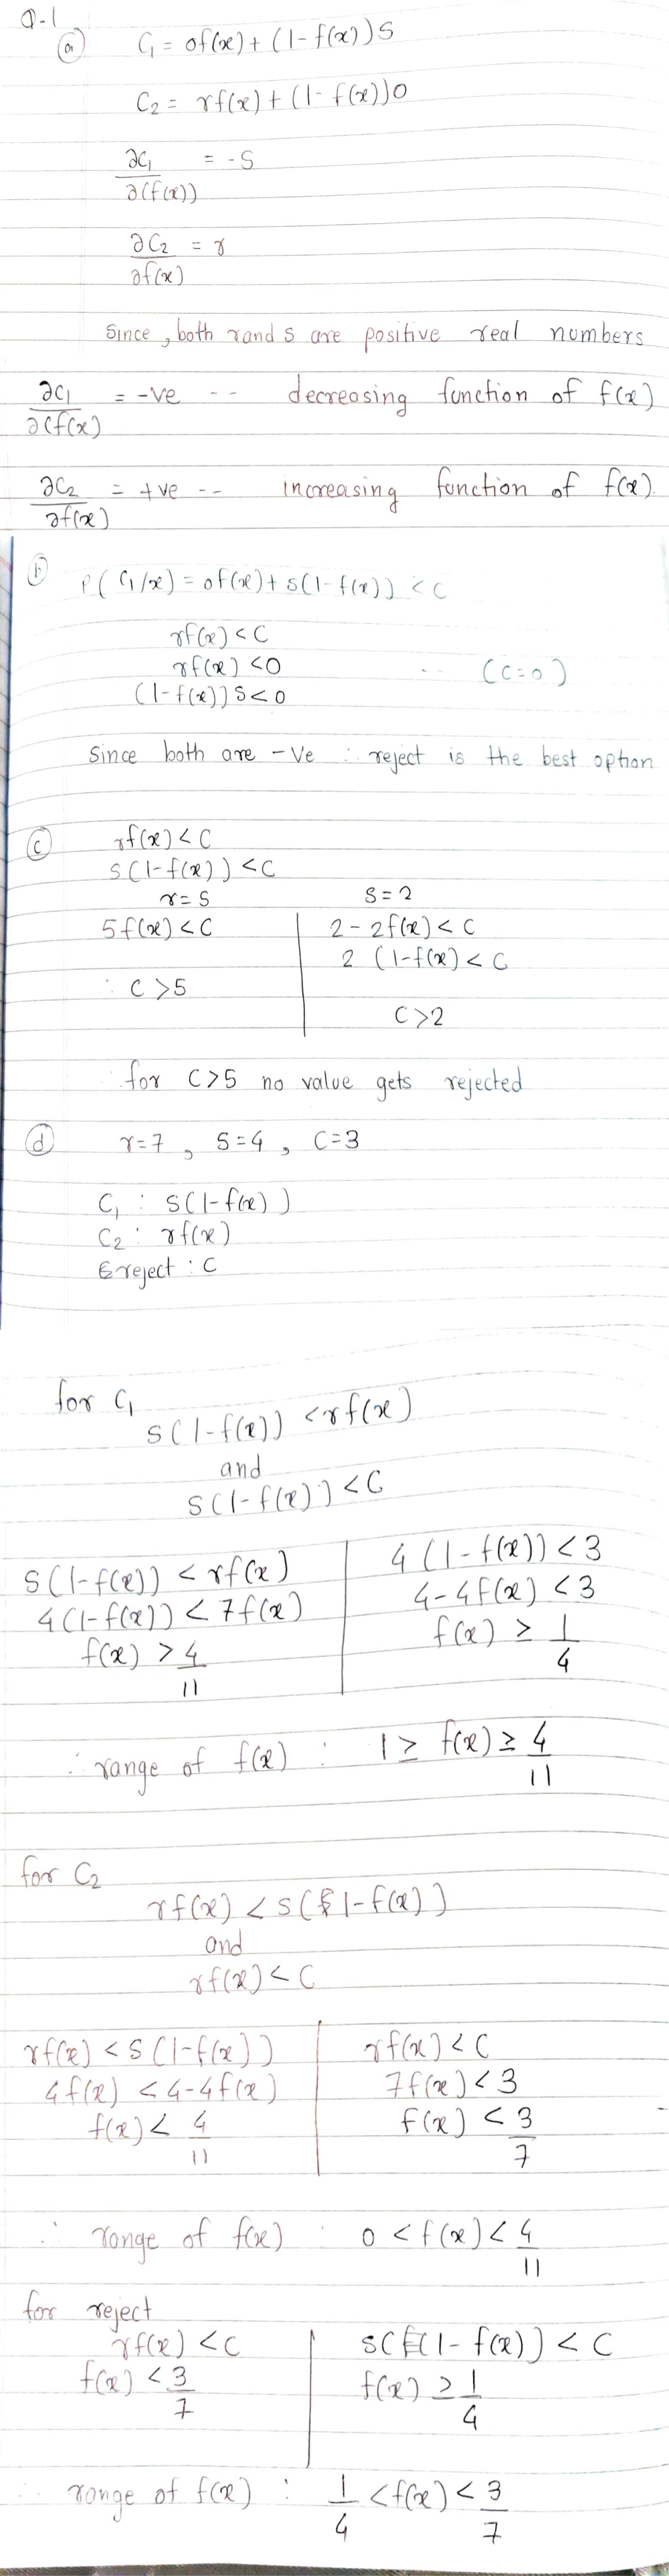 Q-1
(a) C1 = 0f(x) + (1-f(x))S
C2 = rf(x) + (1-f(x))0
∂C1/∂(f(x)) = -S
∂C2/∂f(x) = r
Since, both r and s are positive real numbers
∂C1/∂(f(x)) = -ve -- decreasing function of f(x)
∂C2/∂f(x) = +ve -- increasing function of f(x).
(b) P(C1/x) = 0f(x) + s(1-f(x)) < C
rf(x) < C
rf(x) < 0 -- (C=0)
(1-f(x))S < 0
Since both are -ve ∴ reject is the best option
(c) rf(x) < C
S(1-f(x)) < C
r=5 S=2
5f(x) < C 2-2f(x) < C
2(1-f(x) < C
∴ C > 5
C > 2
∴ for C>5 no value gets rejected
(d) r=7, S=4, C=3
C1 : S(1-f(x))
C2 : rf(x)
reject : C
for C1
S(1-f(x)) < rf(x)
and
S(1-f(x)) < C
S(1-f(x)) < rf(x) 4(1-f(x)) < 3
4(1-f(x)) < 7f(x) 4-4f(x) < 3
f(x) > 4/11 f(x) ≥ 1/4
∴ range of f(x) : 1 ≥ f(x) ≥ 4/11
for C2
rf(x) < S(1-f(x))
and
rf(x) < C
rf(x) < S(1-f(x)) rf(x) < C
4f(x) < 4-4f(x) 7f(x) < 3
f(x) < 4/11 f(x) < 3/7
∴ range of f(x) : 0 < f(x) < 4/11
for reject
rf(x) < C S((1-f(x)) < C
f(x) < 3/7 f(x) ≥ 1/4
∴ range of f(x) : 1/4 < f(x) < 3/7